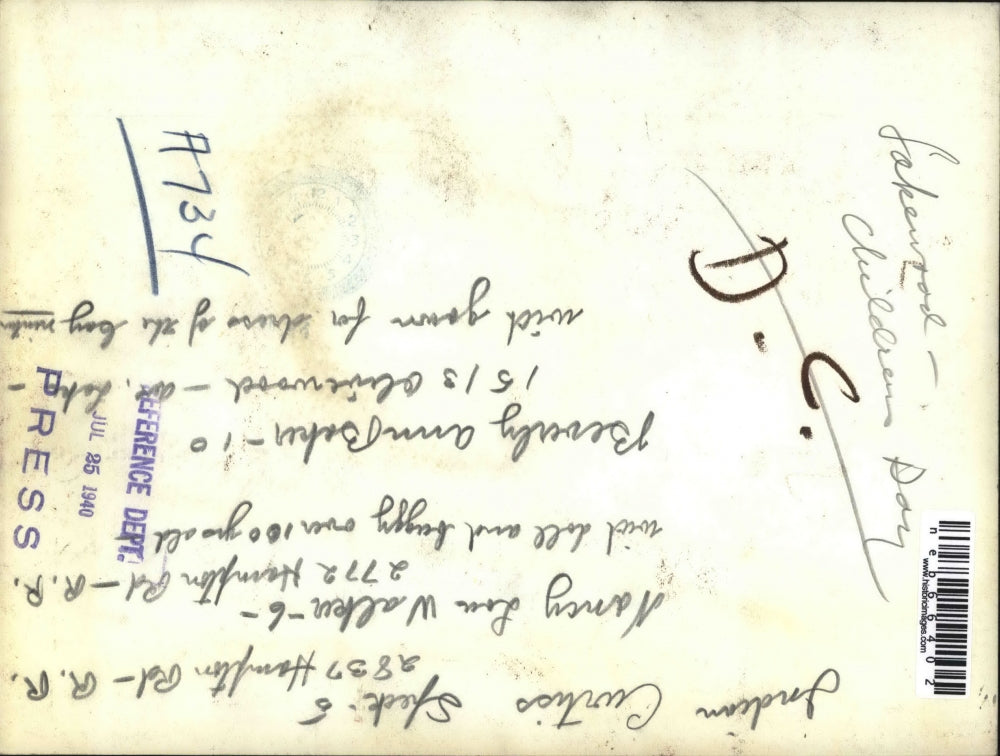 Lakewood -
Childrens Day
D. C.
A734
Indian Curtiss Speck - 5
2837 Hampton Rd - R. R.
Nancy Lou Walker - 6 -
2772 Hampton Rd - R. R.
with doll and buggy over 100 yrs old
Beverly Ann Baker - 10
1513 Olivewood - Lak -
with gown for dress of the Gay
REFERENCE DEPT.
JUL 25 1940
PRESS
neb66402
www.historicimages.com